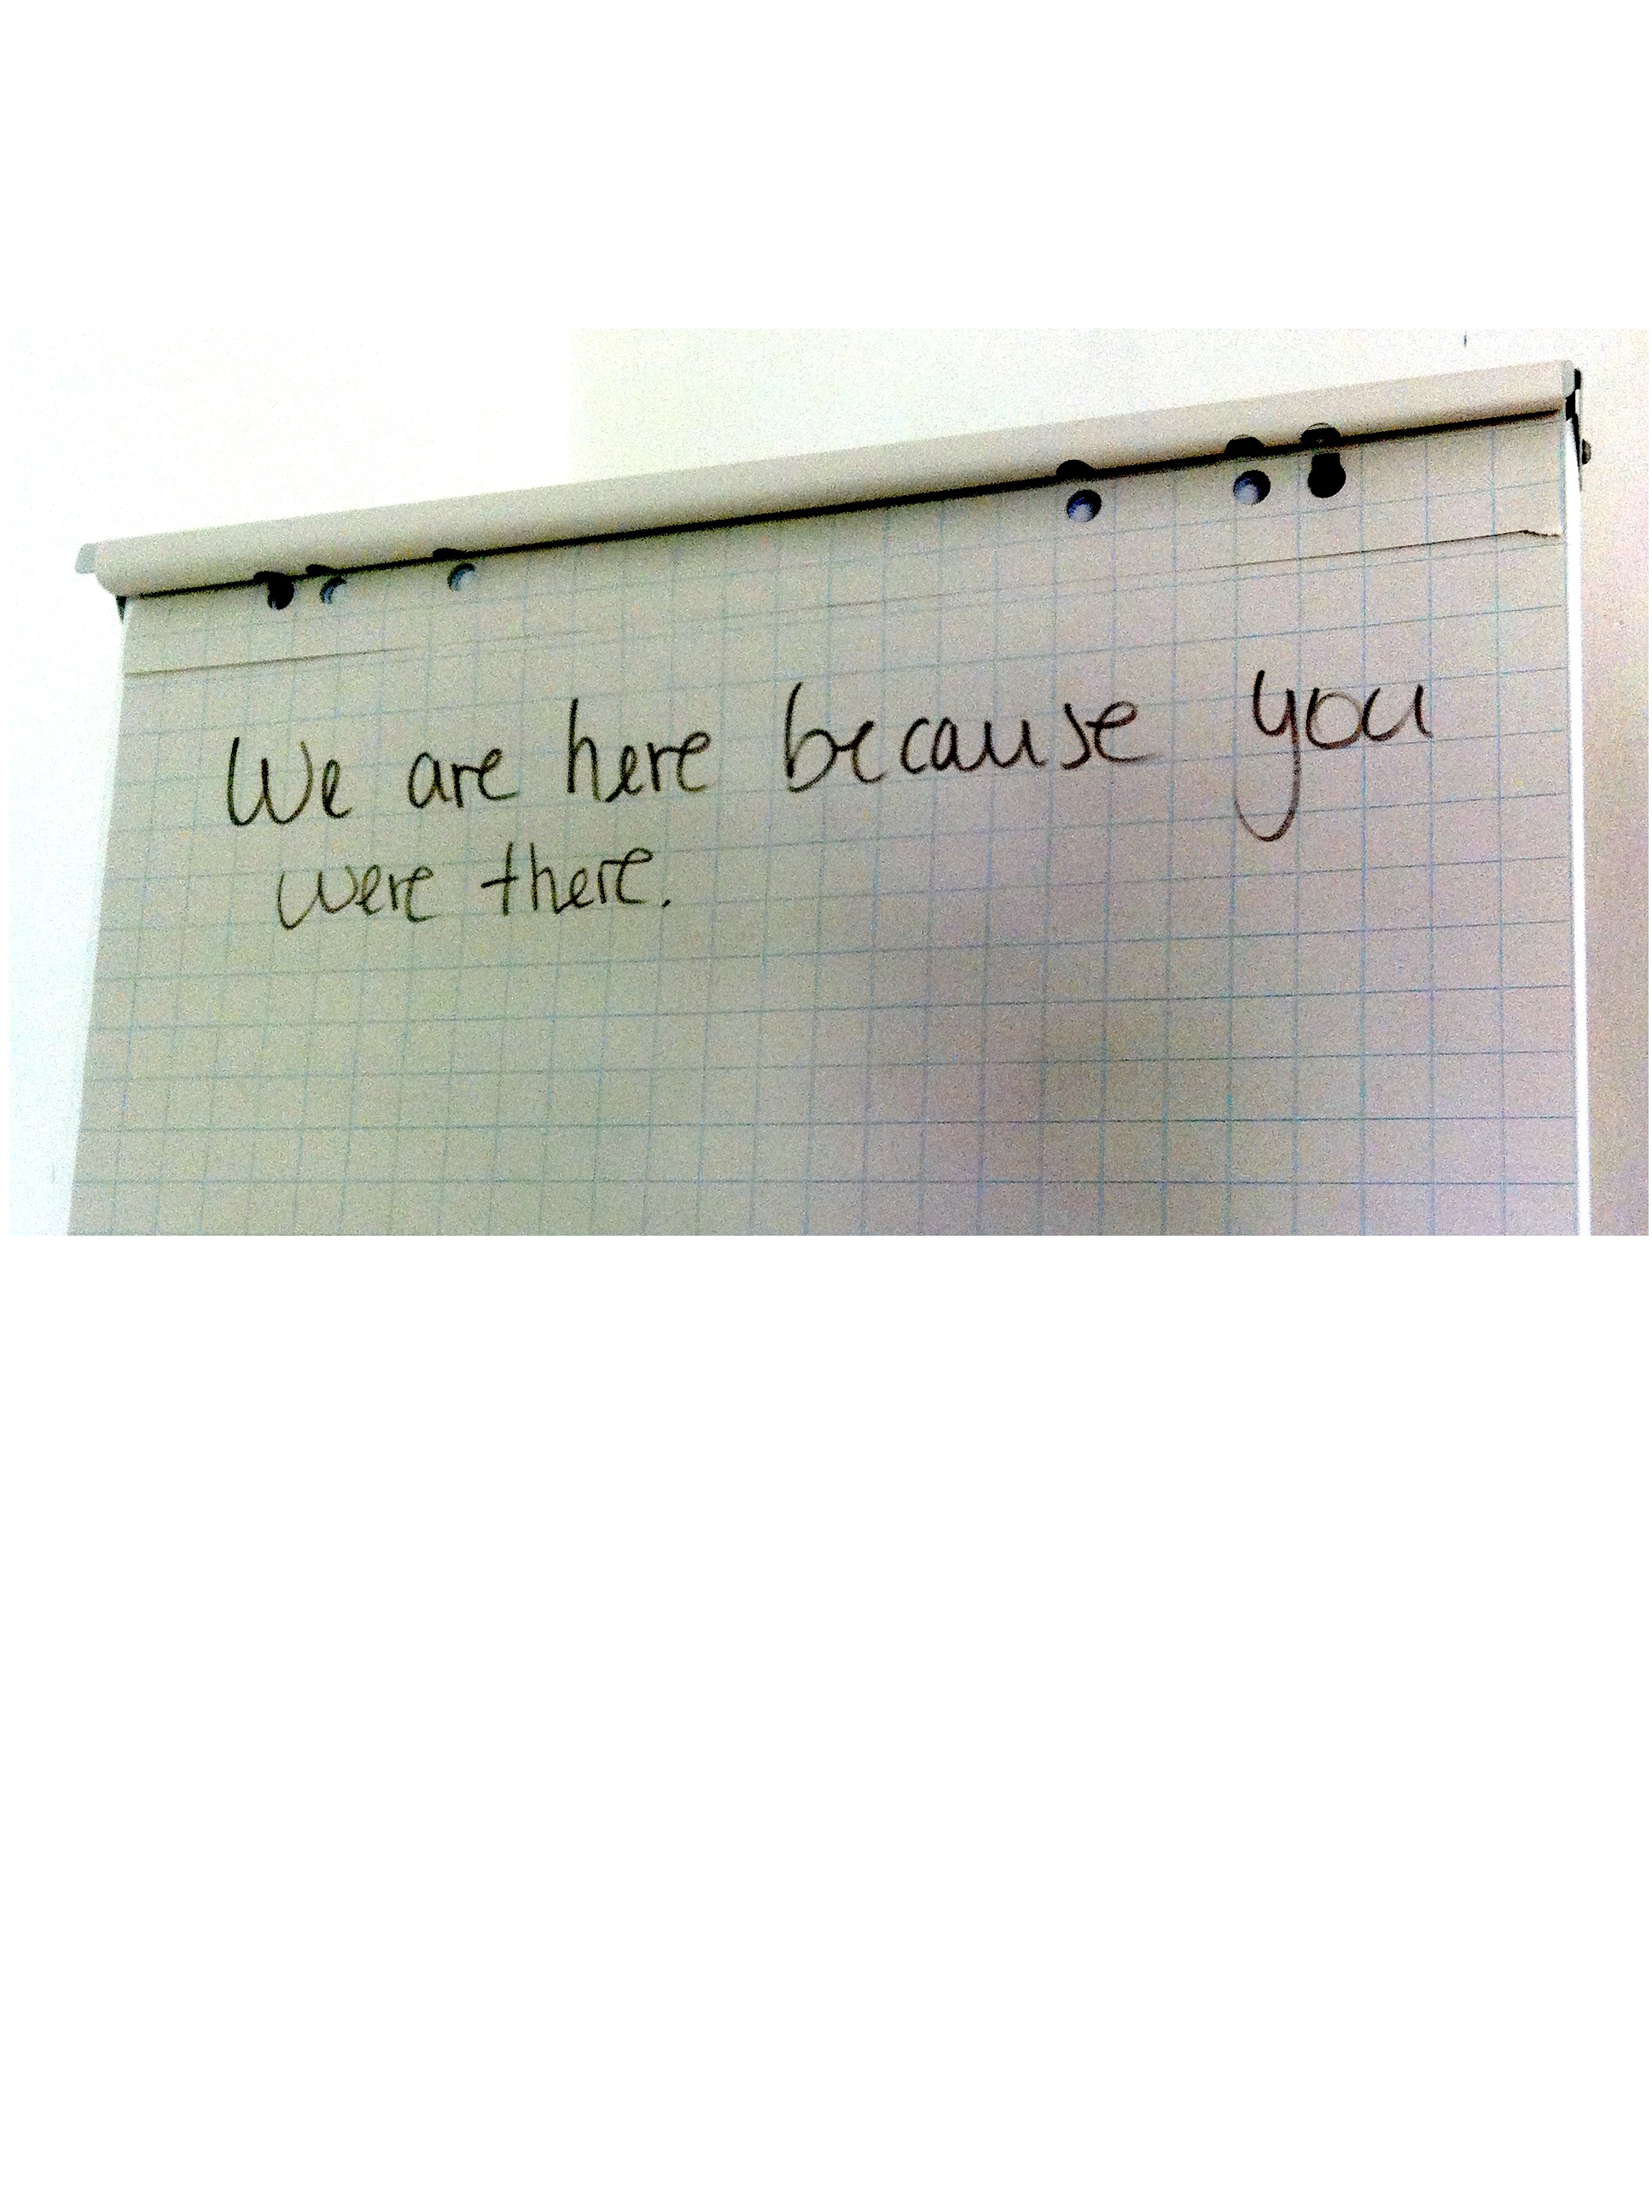 We are here because you
were there.